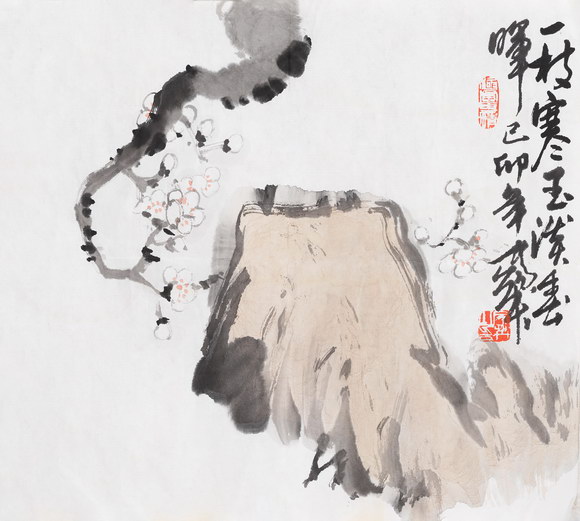 一枝寒玉淡春
暉 己卯年